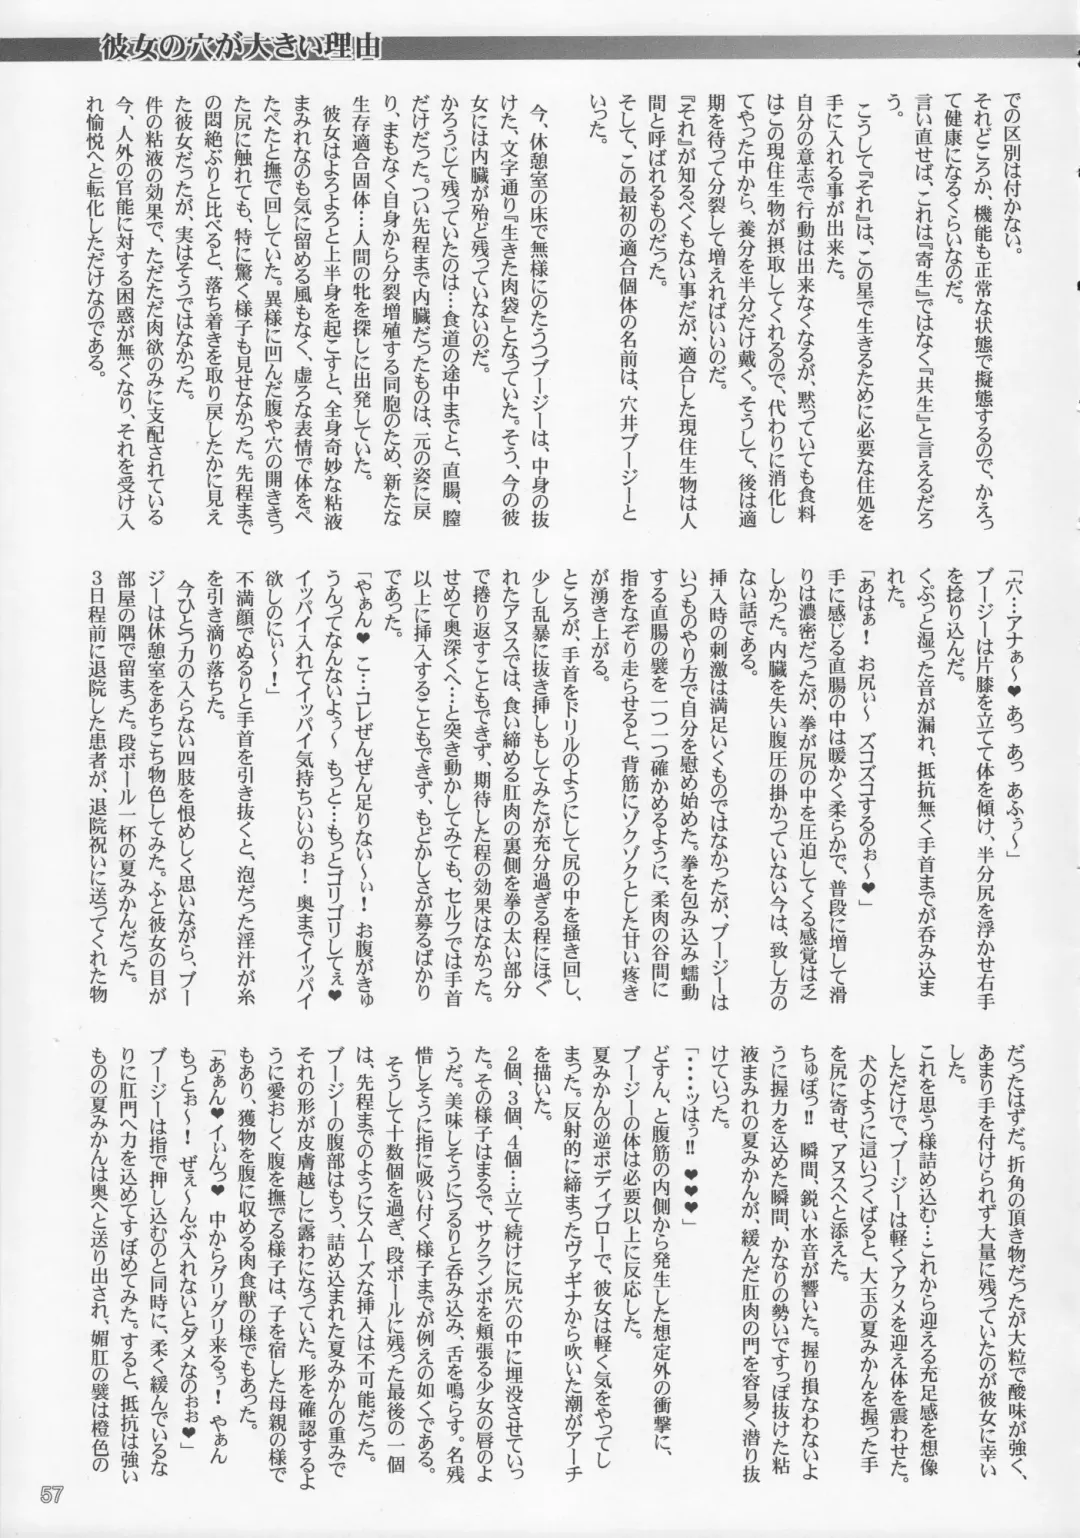 彼女の穴が大きい理由
での区別は付かない。
それどころか、機能も正常な状態で擬態するので、かえっ
て健康になるくらいなのだ。
言い直せば、これは『寄生』ではなく『共生』と言えるだろ
う。
こうして『それ』は、この星で生きるために必要な住処を
手に入れる事が出来た。
自分の意志で行動は出来なくなるが、黙っていても食料
はこの現住生物が摂取してくれるので、代わりに消化し
てやった中から、養分を半分だけ戴く。そうして、後は適
期を待って分裂して増えればいいのだ。
『それ』が知るべくもない事だが、適合した現住生物は人
間と呼ばれるものだった。
そして、この最初の適合個体の名前は、穴井ブージーと
いった。
今、休憩室の床で無様にのたうつブージーは、中身の抜
けた、文字通り『生きた肉袋』となっていた。そう、今の彼
女には内臓が殆ど残っていないのだ。
かろうじて残っていたのは…食道の途中までと、直腸、膣
だけだった。つい先程まで内臓だったものは、元の姿に戻
り、まもなく自身から分裂増殖する同胞のため、新たな
生存適合固体…人間の牝を探しに出発していた。
彼女はよろよろと上半身を起こすと、全身奇妙な粘液
まみれなのも気に留める風もなく、虚ろな表情で体をぺ
たぺたと撫で回していた。異様に凹んだ腹や穴の開ききっ
た尻に触れても、特に驚く様子も見せなかった。先程まで
の悶絶ぶりと比べると、落ち着きを取り戻したかに見え
た彼女だったが、実はそうではなかった。
件の粘液の効果で、ただただ肉欲のみに支配されている
今、人外の官能に対する困惑が無くなり、それを受け入
れ愉悦へと転化しただけなのである。
「穴…アナぁ～♥ あっ あっ あふぅ～」
ブージーは片膝を立てて体を傾け、半分尻を浮かせ右手
を捻り込んだ。
くぷっと湿った音が漏れ、抵抗無く手首までが呑み込ま
れた。
「あはぁ！ お尻ぃ～ ズコズコするのぉ～♥」
手に感じる直腸の中は暖かく柔らかで、普段に増して滑
りは濃密だったが、拳が尻の中を圧迫してくる感覚は乏
しかった。内臓を失い腹圧の掛かっていない今は、致し方の
ない話である。
挿入時の刺激は満足いくものではなかったが、ブージーは
いつものやり方で自分を慰め始めた。拳を包み込み蠕動
する直腸の襞を一つ一つ確かめるように、柔肉の谷間に
指をなぞり走らせると、背筋にゾクゾクとした甘い疼き
が湧き上がる。
ところが、手首をドリルのようにして尻の中を掻き回し、
少し乱暴に抜き挿しもしてみたが充分過ぎる程にほぐ
れたアヌスでは、食い締める肛肉の裏側を拳の太い部分
で捲り返すこともできず、期待した程の効果はなかった。
せめて奥深くへ…と突き動かしてみても、セルフでは手首
以上に挿入することもできず、もどかしさが募るばかり
であった。
「やぁん♥ こ…コレぜんぜん足りない～ぃ！ お腹がきゅ
うんってなんないよぅ～ もっと…もっとゴリゴリしてぇ♥
イッパイ入れてイッパイ気持ちいいのぉ！ 奥までイッパイ
欲しのにぃ～！」
不満顔でぬるりと手首を引き抜くと、泡だった淫汁が糸
を引き滴り落ちた。
今ひとつ力の入らない四肢を恨めしく思いながら、ブー
ジーは休憩室をあちこち物色してみた。ふと彼女の目が
部屋の隅で留まった。段ボール一杯の夏みかんだった。
3日程前に退院した患者が、退院祝いに送ってくれた物
だったはずだ。折角の頂き物だったが大粒で酸味が強く、
あまり手を付けられず大量に残っていたのが彼女に幸い
した。
これを思う様詰め込む…これから迎える充足感を想像
しただけで、ブージーは軽くアクメを迎え体を震わせた。
犬のように這いつくばると、大玉の夏みかんを握った手
を尻に寄せ、アヌスへと添えた。
ちゅぽっ!! 瞬間、鋭い水音が響いた。握り損なわないよ
うに握力を込めた瞬間、かなりの勢いですっぽ抜けた粘
液まみれの夏みかんが、緩んだ肛肉の門を容易く潜り抜
けていった。
「‥‥ッはぅ!! ♥♥♥」
どすん、と腹筋の内側から発生した想定外の衝撃に、
ブージーの体は必要以上に反応した。
夏みかんの逆ボディブローで、彼女は軽く気をやってし
まった。反射的に締まったヴァギナから吹いた潮がアーチ
を描いた。
2個、3個、4個…立て続けに尻穴の中に埋没させていっ
た。その様子はまるで、サクランボを頬張る少女の唇のよ
うだ。美味しそうにつるりと呑み込み、舌を鳴らす。名残
惜しそうに指に吸い付く様子までが例えの如くである。
そうして十数個を過ぎ、段ボールに残った最後の一個
は、先程までのようにスムーズな挿入は不可能だった。
ブージーの腹部はもう、詰め込まれた夏みかんの重みで
それの形が皮膚越しに露わになっていた。形を確認するよ
うに愛おしく腹を撫でる様子は、子を宿した母親の様で
もあり、獲物を腹に収める肉食獣の様でもあった。
「あぁん♥イぃんっ♥ 中からグリグリ来るぅ！ やぁん
もっとぉ～！ ぜぇ～んぶ入れないとダメなのぉぉ♥」
ブージーは指で押し込むのと同時に、柔く緩んでいるな
りに肛門へ力を込めてすぼめてみた。すると、抵抗は強い
ものの夏みかんは奥へと送り出され、媚肛の襞は橙色の
57